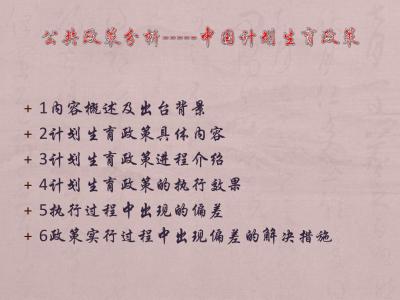 公共政策分析-----中国计划生育政策
+ 1内容概述及出台背景
+ 2计划生育政策具体内容
+ 3计划生育政策进程介绍
+ 4计划生育政策的执行效果
+ 5执行过程中出现的偏差
+ 6政策实行过程中出现偏差的解决措施